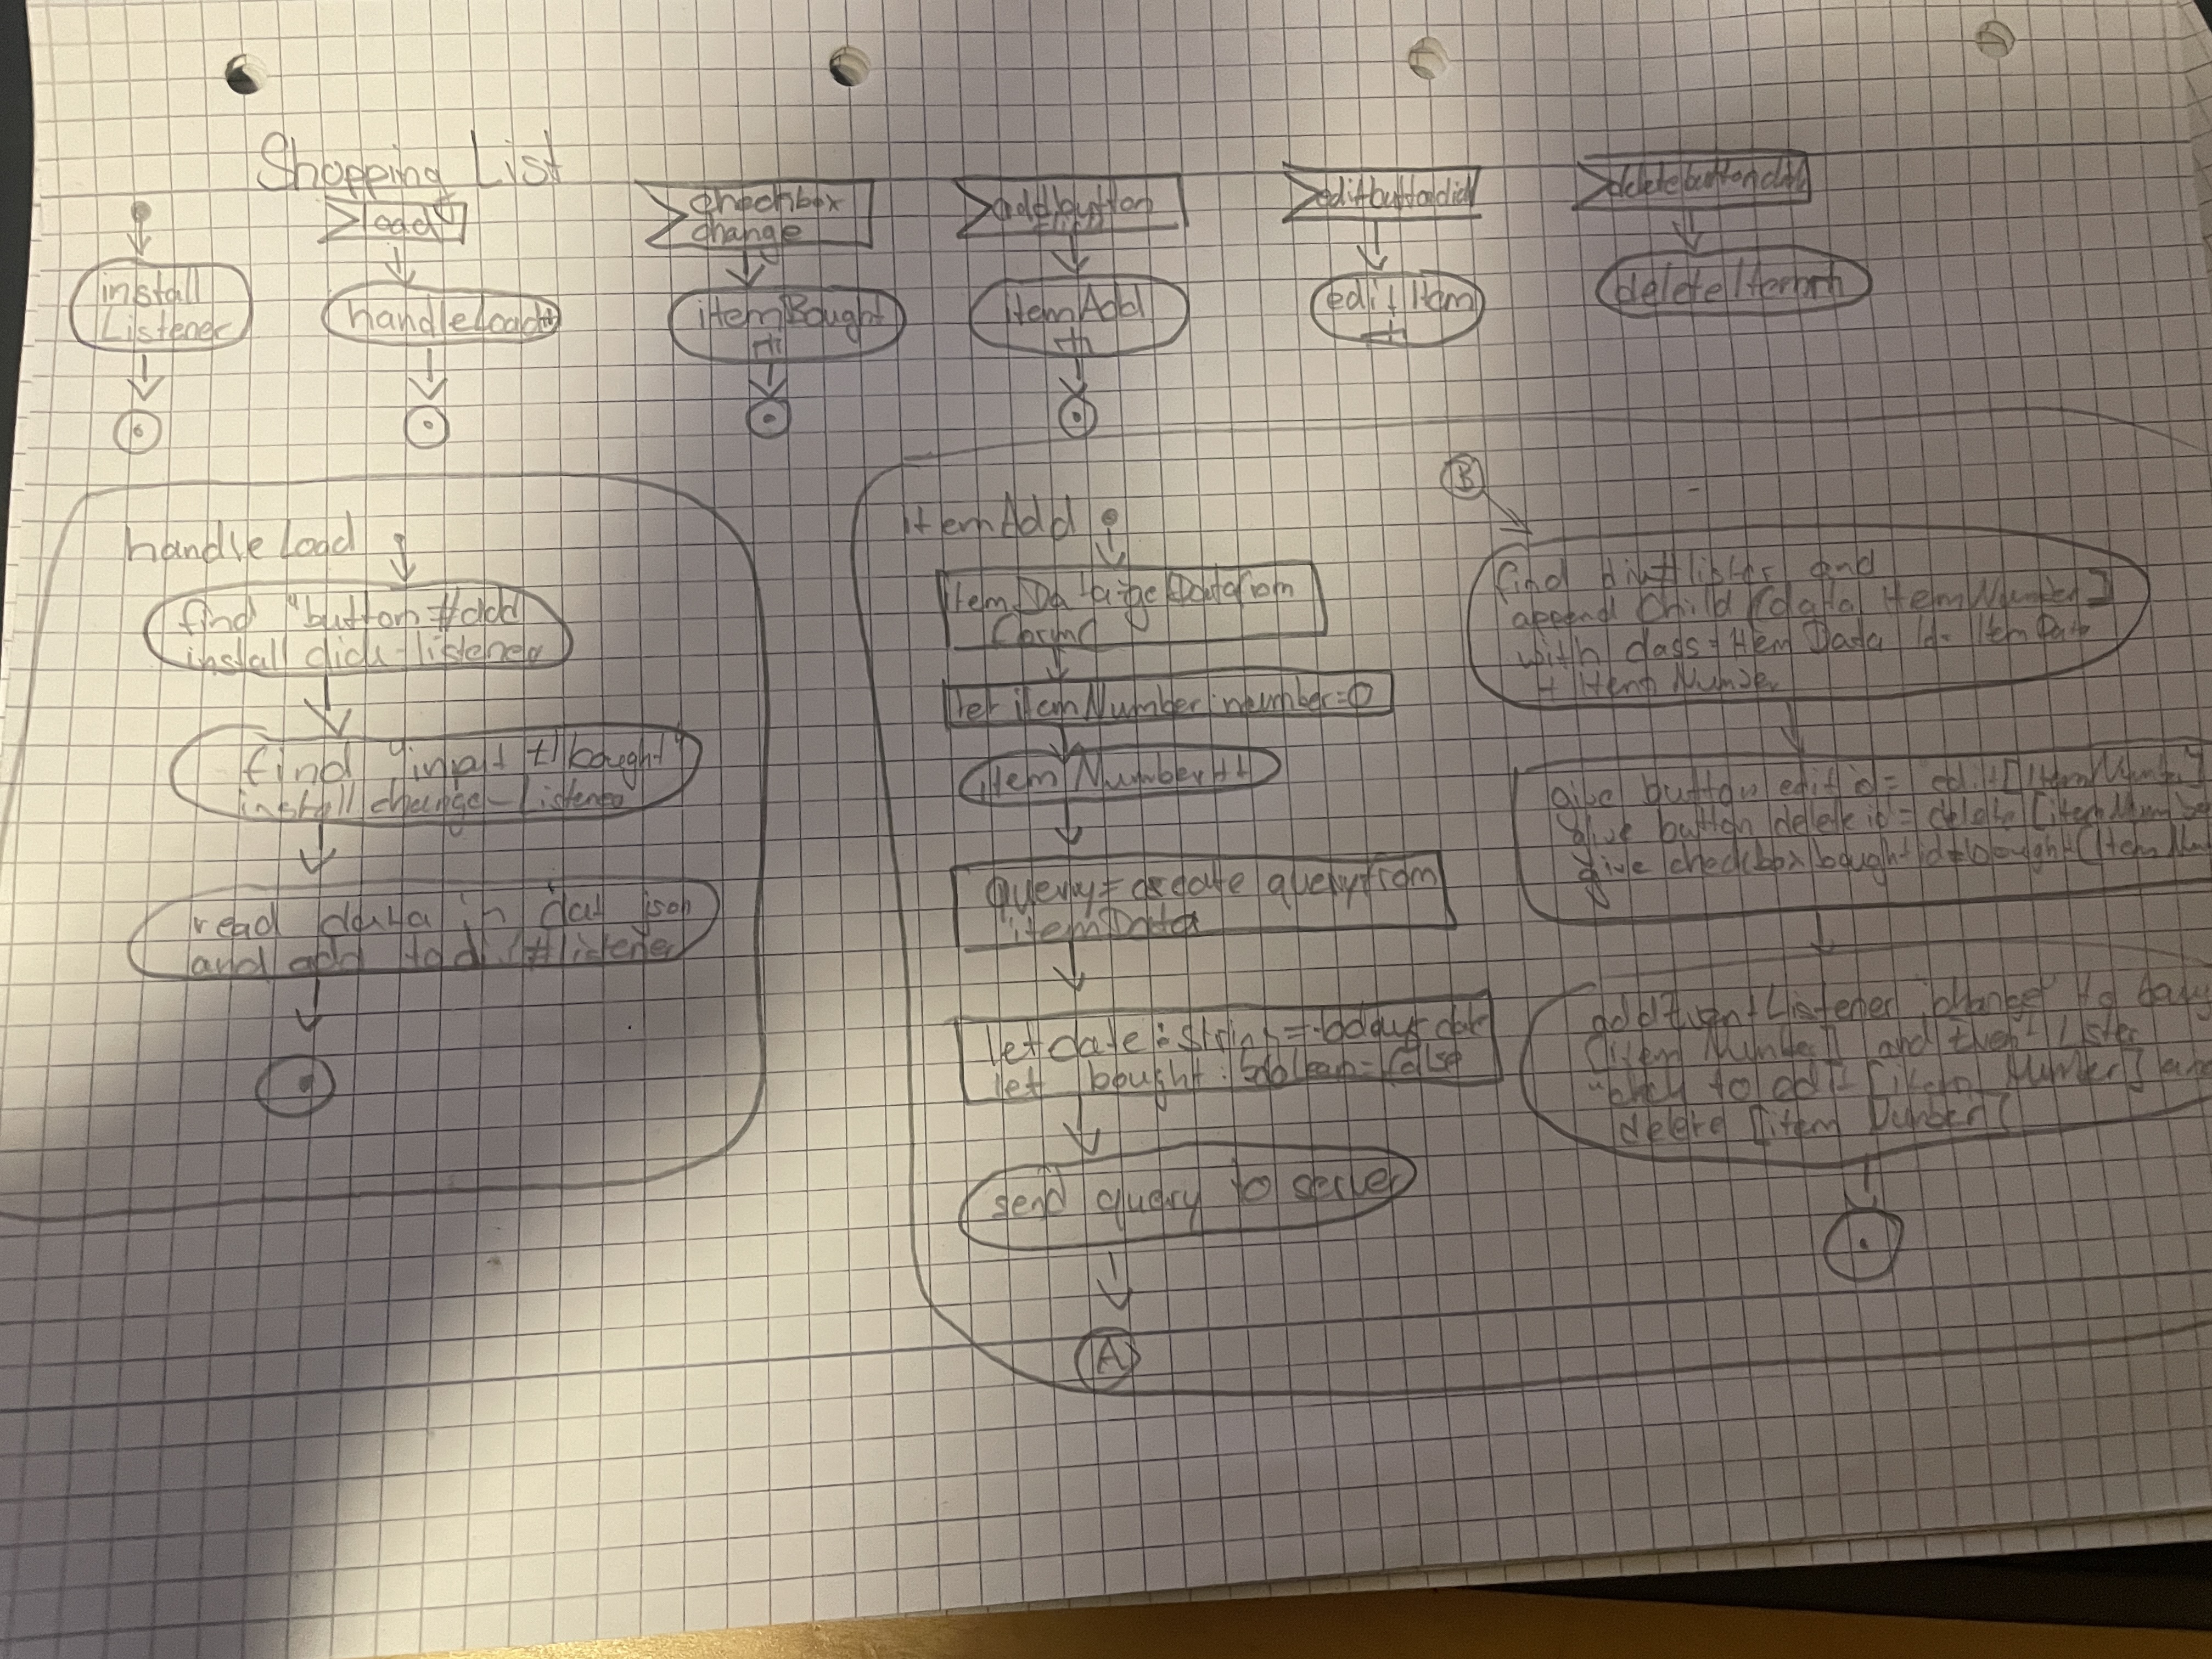 Shopping List
load
checkbox
change
addbutton
editbuttonclick
deletebuttonclick
install
Listener
handleLoad
itemBought
itemAdd
editItem
deleteItem
handle Load
find "button #add
install click-listener
find "input #bought"
install change-listener
read data in dat json
and add to #listener
ItemAdd
Item Data Data from
let itemNumber: number=0
item Number++
query = create query from
itemData
let date : string = todays date
let bought : boolean = false
send query to server
A
B
find and
append Child [data ItemNumber]
with class = Item Data Id= Item Data
+ Item Number
give button edit id = edit[ItemNumber]
give button delete id = delete [itemNumber
give checkbox bought id = bought [Item Num
addEventListener "change" to
[item Number] and Event Liste
to edit [item Number] and
delete [item Number]